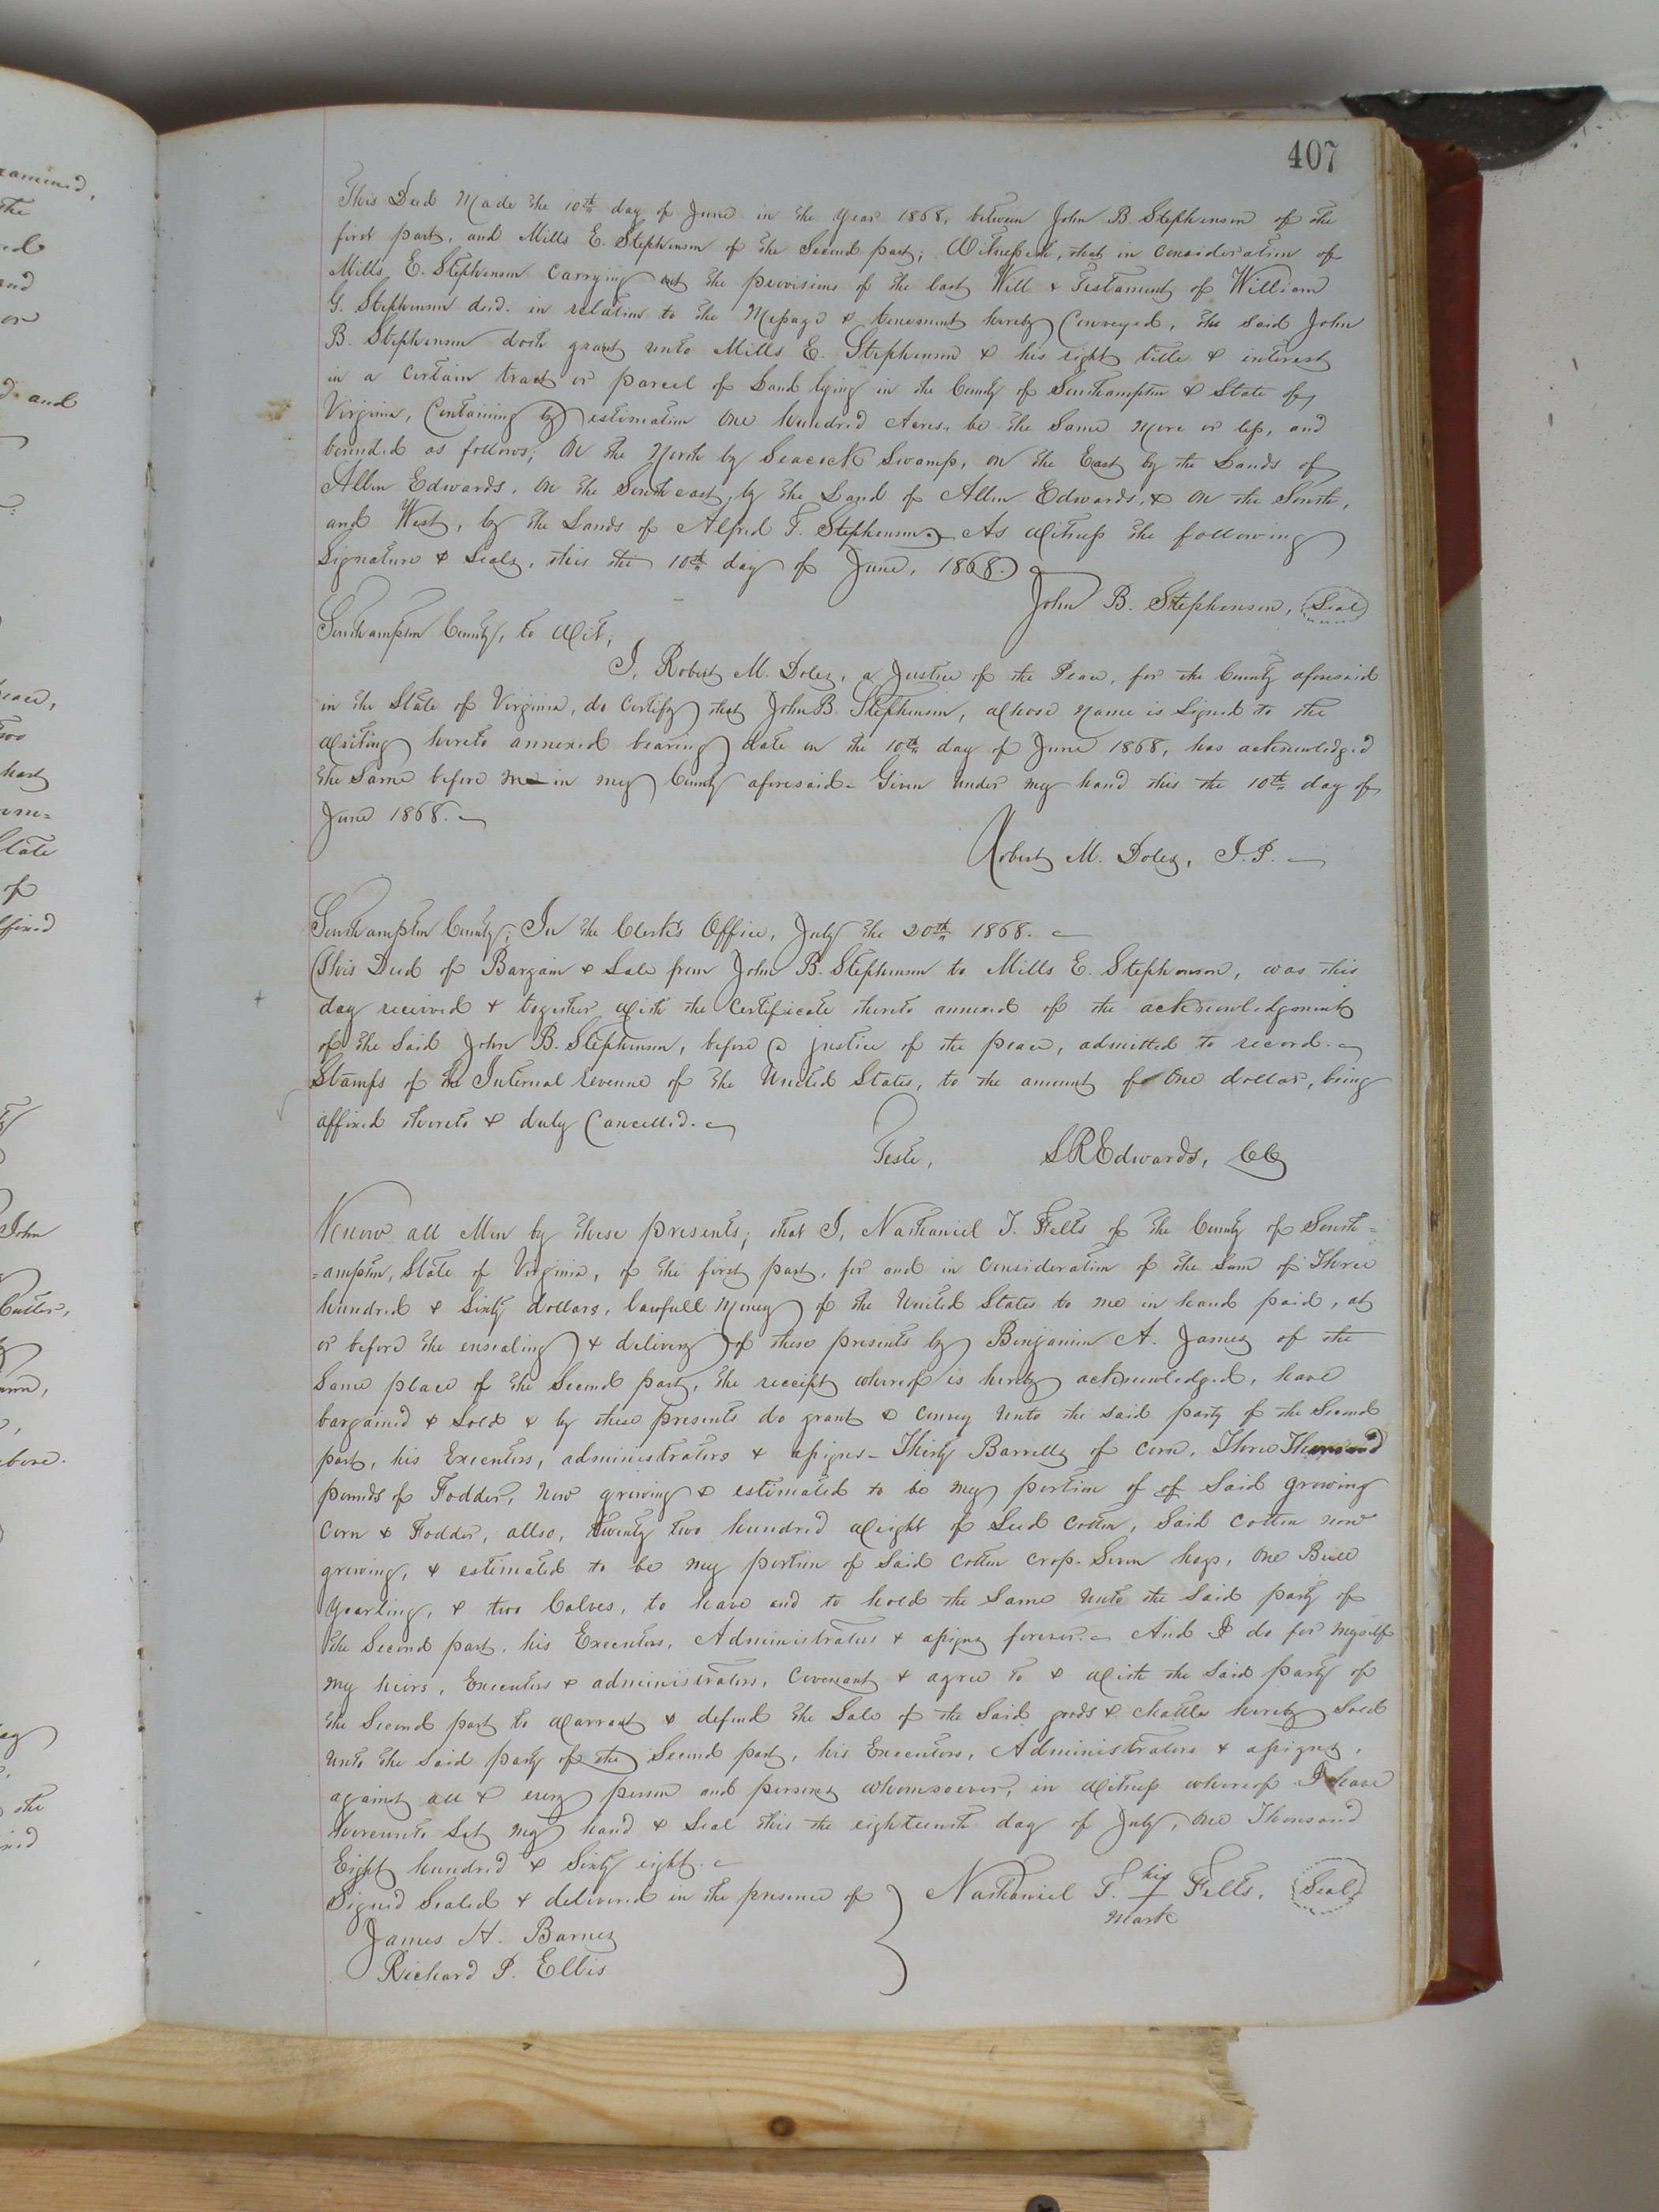 407
This Deed Made the 10th day of June in the year 1868, between John B. Stephenson of the
first part, and Mills E. Stephenson of the Second part; Witnesseth, that in consideration of
Mills, E. Stephenson Carrying out the provisions of the last Will & Testament of William
G. Stephenson decd. in relation to the Message & tenement hereby Conveyed, the Said John
B. Stephenson doth grant unto Mills E. Stephenson & his right title & interest
in a Certain tract or parcel of Land lying in the County of Southampton & State of
Virginia, Containing by estimation One hundred Acres, be the Same More or less, and
bounded as follows; On the North by Seacock Swamp, on the East by the Lands of
Allen Edwards, On the South east, by the Land of Allen Edwards, & On the South,
and West, by the Lands of Alfred T. Stephenson. As Witness the following
Signature & Seals, this the 10th day of June, 1868.
John B. Stephenson, Seal
Southampton County, to Wit;
I, Robert M. Doles, a Justice of the Peace, for the County aforesaid
in the State of Virginia, do Certify that John B. Stephenson, whose name is Signed to the
Writing hereto annexed bearing date on the 10th day of June 1868, has acknowledged
the Same before me in my County aforesaid. Given under my hand this the 10th day of
June 1868.
Robert M. Doles, J.P.
Southampton County; In the Clerk's Office, July the 20th 1868.
This Deed of Bargain & Sale from John B. Stephenson to Mills E. Stephenson, was this
day received & together With the Certificate thereto annexed of the acknowledgment
of the Said John B. Stephenson, before a justice of the peace, admitted to record.
Stamps of the Internal revenue of the United States, to the amount of One dollar, being
affixed thereto & duly Cancelled.
Teste, S R Edwards, CC
Know all Men by these presents; that I, Nathaniel T. Felts of the County of South=
=ampton, State of Virginia, of the first part, for and in Consideration of the Sum of Three
hundred & Sixty dollars, lawfull Money of the United States to me in hand paid, at
or before the ensealing & delivery of these presents by Benjamin A. James of the
Same place of the Second part, the receipt whereof is hereby acknowledged, have
bargained & Sold & by these presents do grant & Convey Unto the said party of the Second
part, his Executors, administrators & assigns - Thirty Barrells of corn, Three Thousand
pounds of Fodder, now growing & estimated to be my portion of of Said growing
Corn & Fodder, allso, twenty two hundred Weight of Seed Cotton, Said Cotton now
growing, & estimated to be my portion of Said Cotton Crop. Seven hogs, One Bull
Yearling, & two Calves, to have and to hold the Same Unto the Said party of
the Second part, his Executors, Administrators & assigns forever. And I do for myself
my heirs, Executors & administrators, Covenant & agree to & With the Said party of
the Second part to Warrant & defend the Sale of the Said goods & Chattles hereby Sold
Unto the Said party of the Second part, his Executors, Administrators & assigns,
against all & every person and persons whomsoever, in Witness whereof I have
hereunto Set my hand & Seal this the eighteenth day of July, One Thousand
Eight hundred & Sixty eight.
Signed Sealed & delivered in the presence of } Nathaniel T. his + mark Felts, Seal
James H. Barnes
Richard P. Ellis